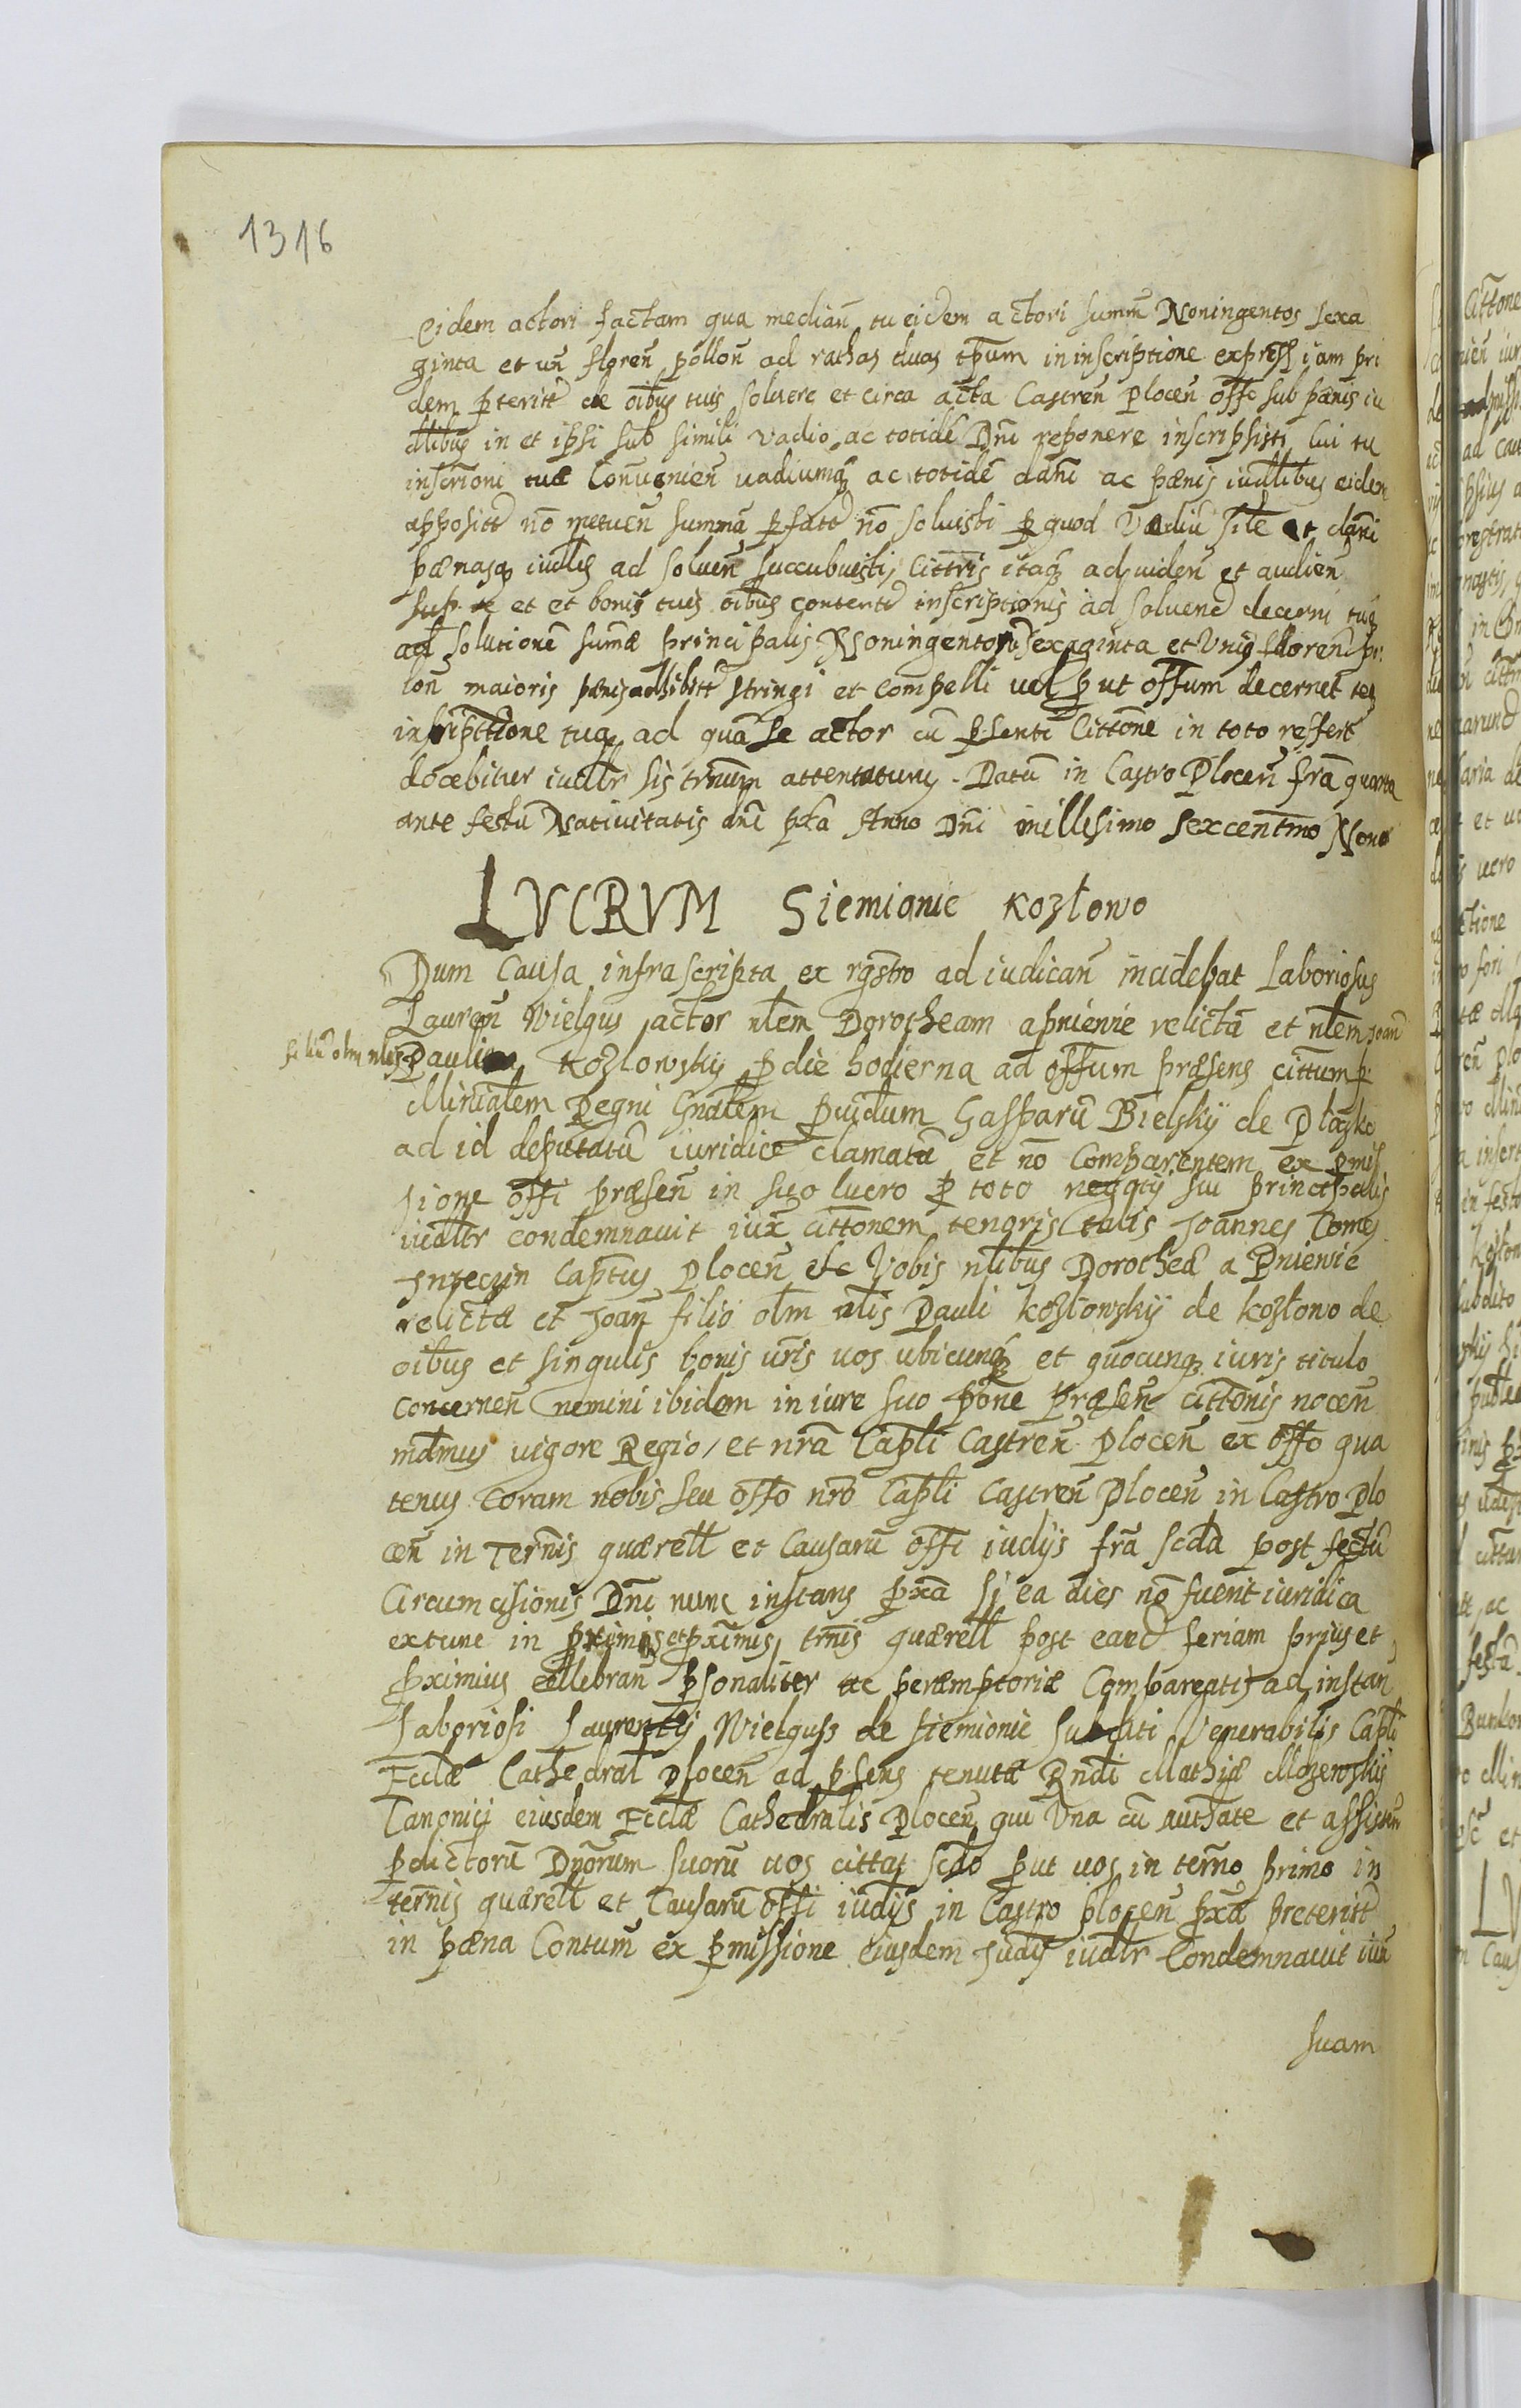 1316
Eidem actori factam qua median̄ tu eidem actori summ̄ Noningentos sexa
ginta et un̄ floren̄ pollon̄ ad rathas duas tp̄um in inscriptione express iam pri
dem p̄teritt de oībus tuis soluere et circa acta Castren̄ Plocen̄ off̄o sub pænis iu
dl̄ibus in et ipsi sub simili vadio ac totidē Dn̄i reponere inscripsisti cui tu
inscrīoni tuæ Conuenien̄ uadiumq̄ ac totidē dan̄i ac pænis iudl̄ibus eidem
appositt nō metuen̄ summā p̄fatt nō soluisti p̄ quod Vadiū sil̄e et dan̄i
pænasq̄ iudl̄es ad soluen̄ succubuisti, Citt̄ris itaq̄ ad uiden̄ et audien̄
sup te et et bonis tuis oībus contentt inscriptionis ad soluend decerni tuq̄
ad solutionē sum̄æ principalis Noningentorū sexaginta et Unius floren̄ pol
lon̄ maioris pænis adhibitt stringi et compelli uel p̄ut off̄um decernet
inscriptione tuq̄ ad quā se actor cū p̄senti Citt̄one in toto reffert
docebitur iudl̄r sis tr̄num attentaturus. Datū in Castro Plocen̄ fr̄a quarta
ante festū Natiuitatis dn̄i px̄a Anno Dn̄i millesimo sexcent̄mo Nono
LVCRVM Siemionie Kozłowo
Dum Causa infrascripta ex rgs̄tro ad iudican̄ incidebat Laboriosus
Lauren̄ Wielgus actor nl̄em Dorotheam a pnienie relictā et nl̄em Joan̄
filiū olm nl̄is Pauli Kozlowsky p̄ die hodierna ad off̄um præsens citt̄um p̄
Min̄ial̄em Regni Gn̄al̄em p̄uidum Gasparū Bielsky de Płogko
ad id deputatū iuridice clamatū et nō Comparentem ex p̄mis
sione off̄i præsen̄ in suo lucro p̄ toto negotÿ sui principalis
iudl̄r condemnauit iux̄ citt̄onem tenoris talis Joannes Comes
Capt̄us Plocen̄ etc Vobis nl̄ibus Dorotheæ a Pnienie
relictæ et Joan̄ filio olm nl̄is Pauli Kozłowskÿ de Kozłowo de
oībus et singulis bonis ur̄is uos ubicunq̄ et quocunq̄ iuris titulo
concernen̄ nemini ibidem in iure suo p̄one Præsen̄ citt̄onis nocen̄
mād̄mus uigore Regio, et nr̄a Cap̄li Castren̄ Plocen̄ ex off̄o qua
tenus Coram nobis seu off̄o nr̄o Cap̄li Castren̄ Plocen̄ in Castro Plo
cen̄ in Ter̄nis quærell et Causarū off̄i iudÿs fr̄a scd̄a post festū
Circumcisionis Dn̄i nunc instans p̄xa si ea dies nō fuerit iuridica
extunc in primis et px̄imis, tr̄nis quærell post eand feriam prius et
p̄ximius cellebran̄ p̄sonaliter ac peræmptoriæ Compareatis ad instan̄
Laboriosi Laurentÿ Wielguss de Siemionie subditi Venerabilis Cap̄li
Eccl̄æ Cathedral Plocen̄ ad p̄sens tenutæ Rn̄di Mathiæ
Canonici eiusdem Eccl̄æ Cathedralis Plocen̄ qui Vna cū auth̄ate et assisten̄
p̄dictorū Dn̄orum suorū uos cittat scd̄o p̄ut uos in ter̄no primo in
ter̄nis quærell et Causarū off̄i iudÿs in Castro plocen̄ p̄xa preteritt
in pæna Contum̄ ex p̄missione eiusdem Judÿ iudl̄r Condemnauit iux̄
suam